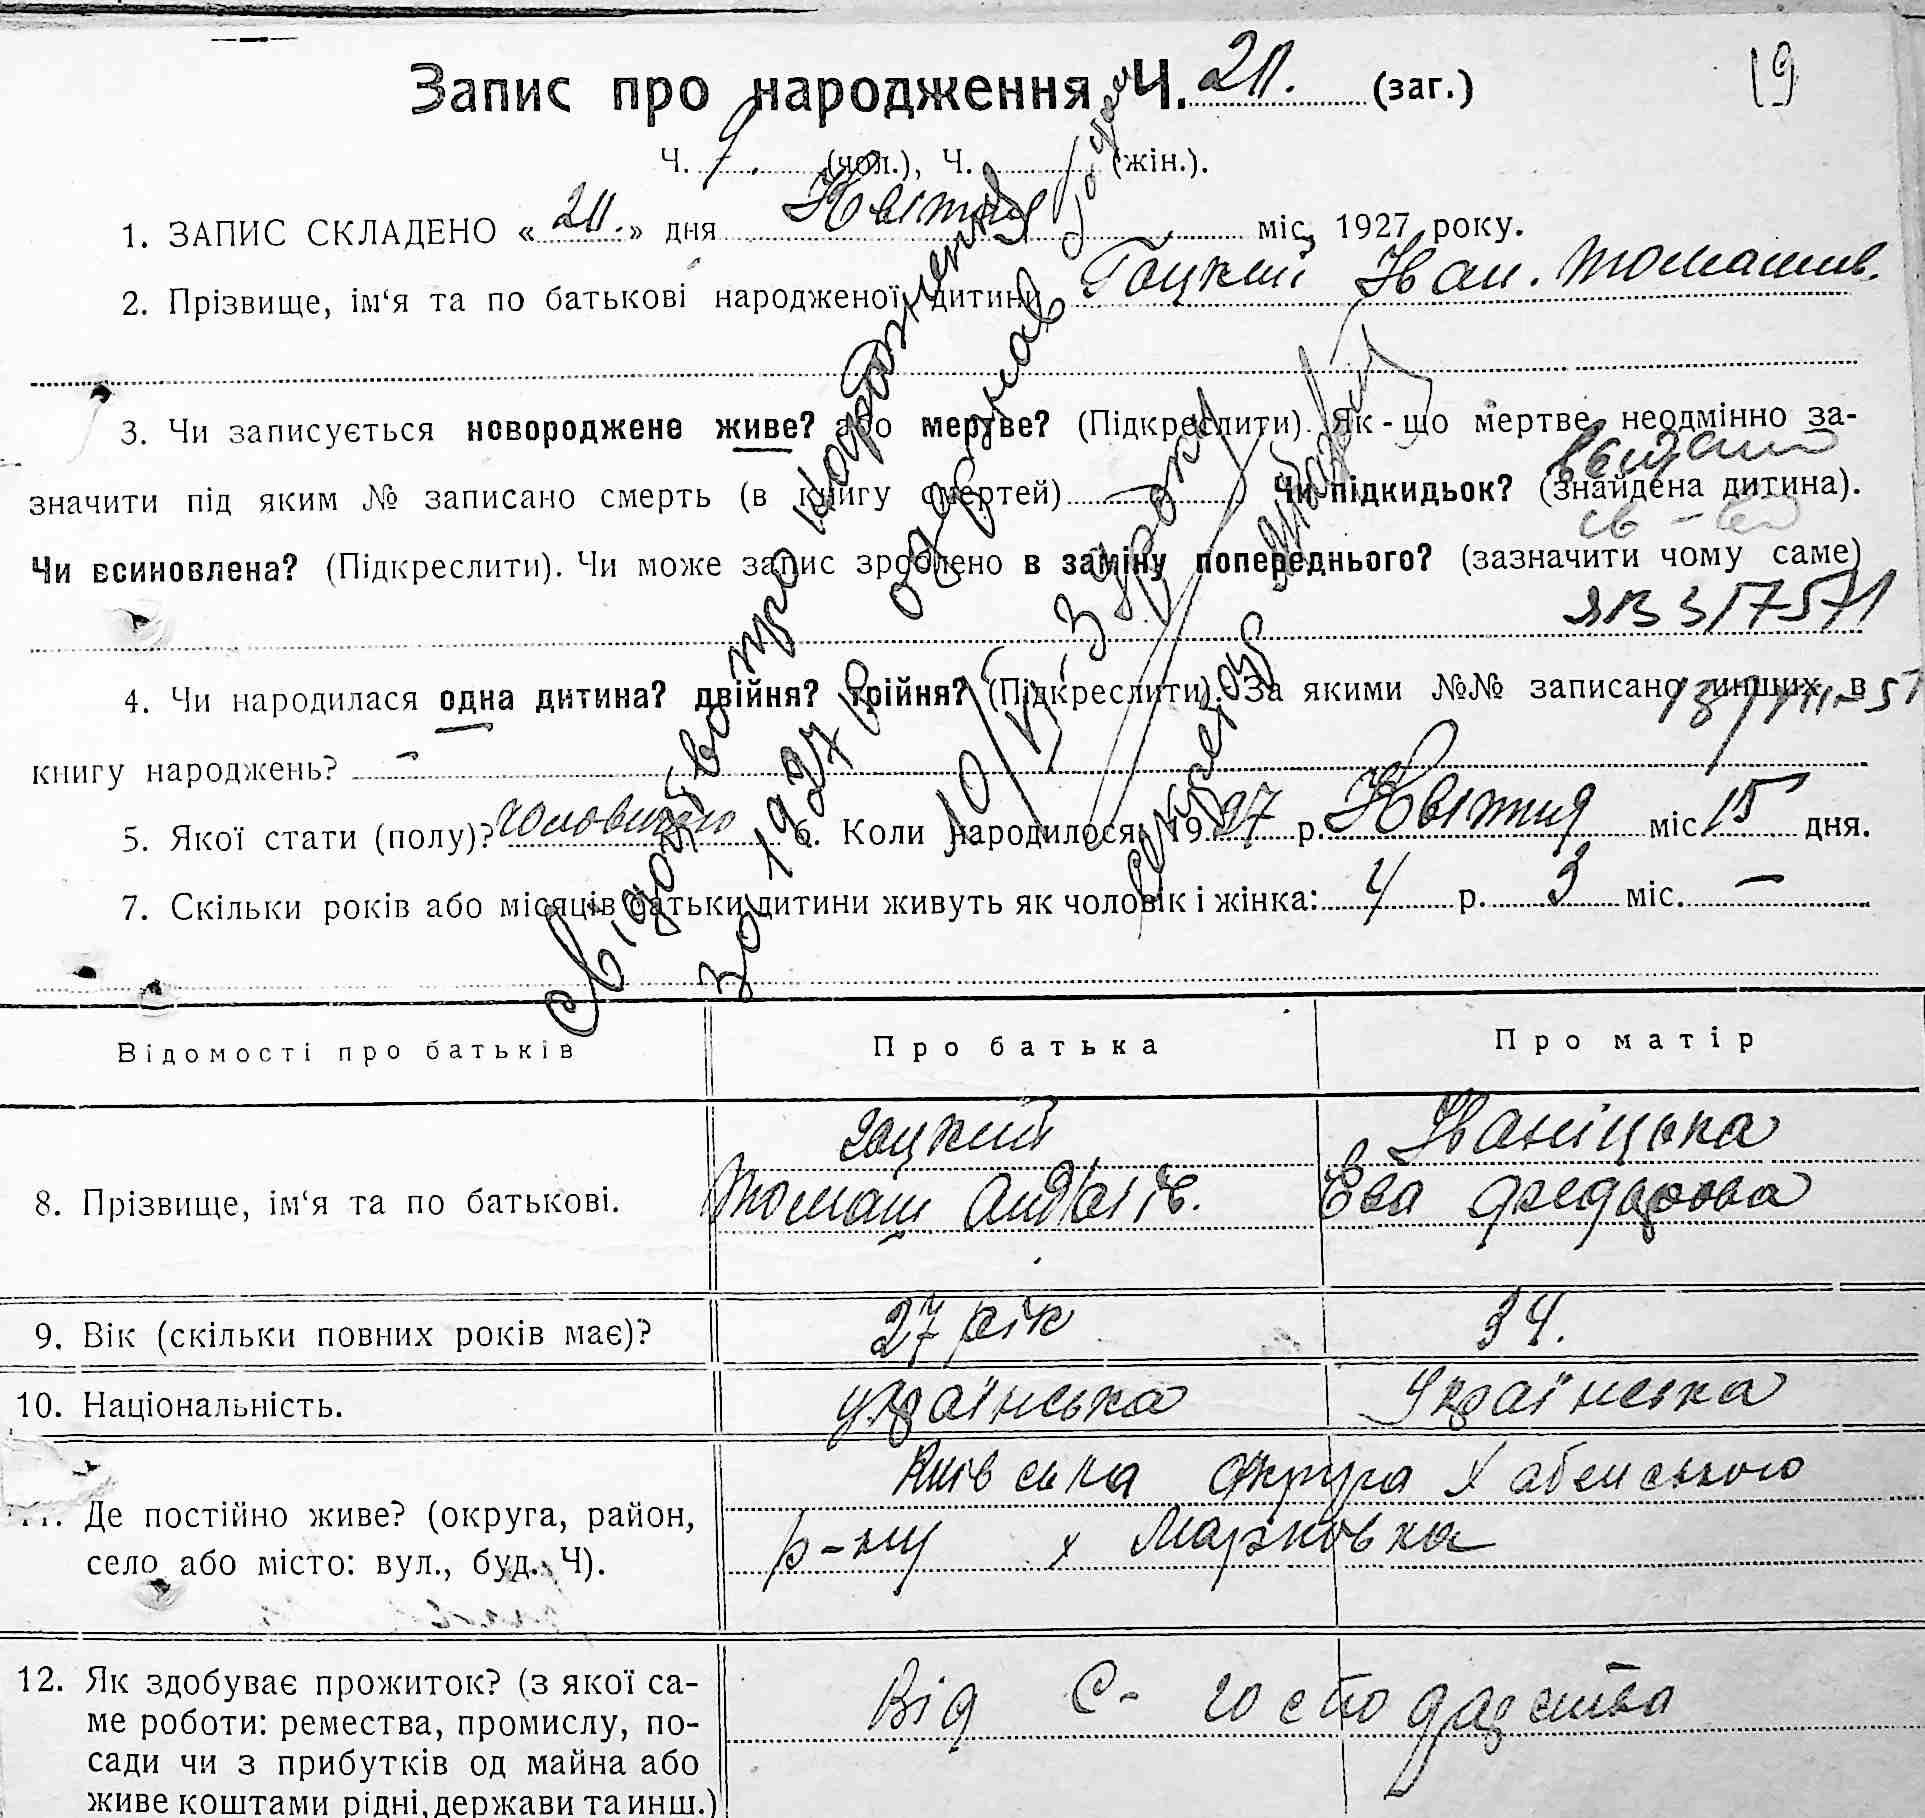 19
Запис про народження Ч. 20. (заг.)
Ч. 9. (чол.), Ч. (жін.).
1. ЗАПИС СКЛАДЕНО « 20. » дня Квітня міс. 1927 року.
2. Прізвище, ім‘я та по батькові народженої дитини Гоцкий Іван. Томашив.
3. Чи записується новороджене живе? або мертве? (Підкреслити). Як-що мертве, неодмінно за-
значити під яким № записано смерть (в книгу смертей) – Чи підкидьок? (знайдена дитина).
Чи всиновлена? (Підкреслити). Чи може запис зроблено в заміну попереднього? (зазначити чому саме)
выдано
св-во
ЯВ 317571
4. Чи народилася одна дитина? двійня? трійня? (Підкреслити). За якими №№ записано инших в
книгу народжень? –
5. Якої стати (полу)? чоловичого 6. Коли народилося: 1927 р. Квітня міс 15 дня.
7. Скільки років або місяців батьки дитини живуть як чоловік і жінка: 4 р. 3 міс. –
Свідоцтво про народження
за 1927 р одержав
10/VI 33 року
Відомості про батьків Про батька Про матір
гоцкий Іваніцька
8. Прізвище, ім‘я та по батькові. Томаш Андріїв. Ева Федорова
9. Вік (скільки повних років має)? 27 рік 34.
10. Національність. українська Українська
Київська округа Хабенського
Де постійно живе? (округа, район, р-ну х Марковка
село або місто: вул., буд. Ч).
12. Як здобуває прожиток? (з якої са- Від С-господарства
ме роботи: ремества, промислу, по-
сади чи з прибутків од майна або
живе коштами рідні, держави та инш.)